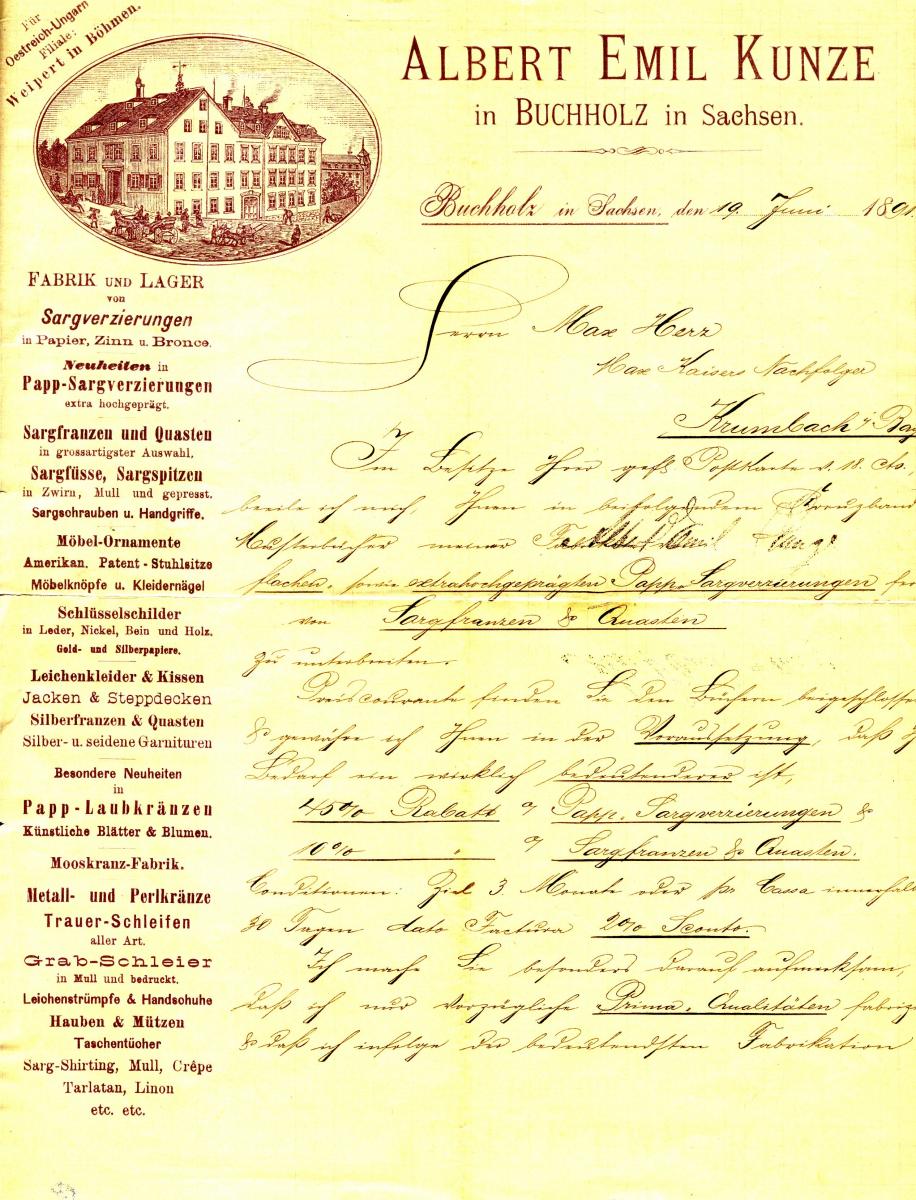 Für
Oestreich-Ungarn
Filiale:
Weipert in Böhmen.
ALBERT EMIL KUNZE
in BUCHHOLZ in Sachsen.
Buchholz in Sachsen, den 19. Juni 1891
FABRIK UND LAGER
von
Sargverzierungen
in Papier, Zinn u. Bronce.
Neuheiten in
Papp-Sargverzierungen
extra hochgeprägt.
Sargfranzen und Quasten
in grossartigster Auswahl.
Sargfüsse, Sargspitzen
in Zwirn, Mull und gepresst.
Sargschrauben u. Handgriffe.
Möbel-Ornamente
Amerikan. Patent-Stuhlsitze
Möbelknöpfe u. Kleidernägel
Schlüsselschilder
in Leder, Nickel, Bein und Holz.
Gold- und Silberpapiere.
Leichenkleider & Kissen
Jacken & Steppdecken
Silberfranzen & Quasten
Silber- u. seidene Garnituren
Besondere Neuheiten
in
Papp-Laubkränzen
Künstliche Blätter & Blumen.
Mooskranz-Fabrik.
Metall- und Perlkränze
Trauer-Schleifen
aller Art.
Grab-Schleier
in Mull und bedruckt.
Leichenstrümpfe & Handschuhe
Hauben & Mützen
Taschentücher
Sarg-Shirting, Mull, Crêpe
Tarlatan, Linon
etc. etc.
Herrn Max Herz
Max Kaisers Nachfolger
Krumbach i/ Bay
Im Besitze Ihrer gefl. Postkarte v. 18. cts.
beeile ich mich, Ihnen in beifolgendem Kreuzband
Musterbücher meiner
flachen, sowie extrahochgeprägten Papp-Sargverzierungen
von Sargfranzen & Quasten
zu unterbreiten.
Preiscourante finden Sie den Büchern beigeschlossen
& gewähre ich Ihnen in der Voraussetzung, daß
Bedarf ein wirklich bedeutenderer ist,
45% Rabatt a/ Papp-Sargverzierungen &
10% " a/ Sargfranzen & Quasten.
Conditionen: Ziel 3 Monate oder pr Cassa innerhalb
30 Tagen dato Factura 2% Sconto.
Ich mache Sie besonders darauf aufmerksam,
daß ich nur vorzügliche Prima-Qualitäten
& daß ich infolge der bedeutendsten Fabrikation